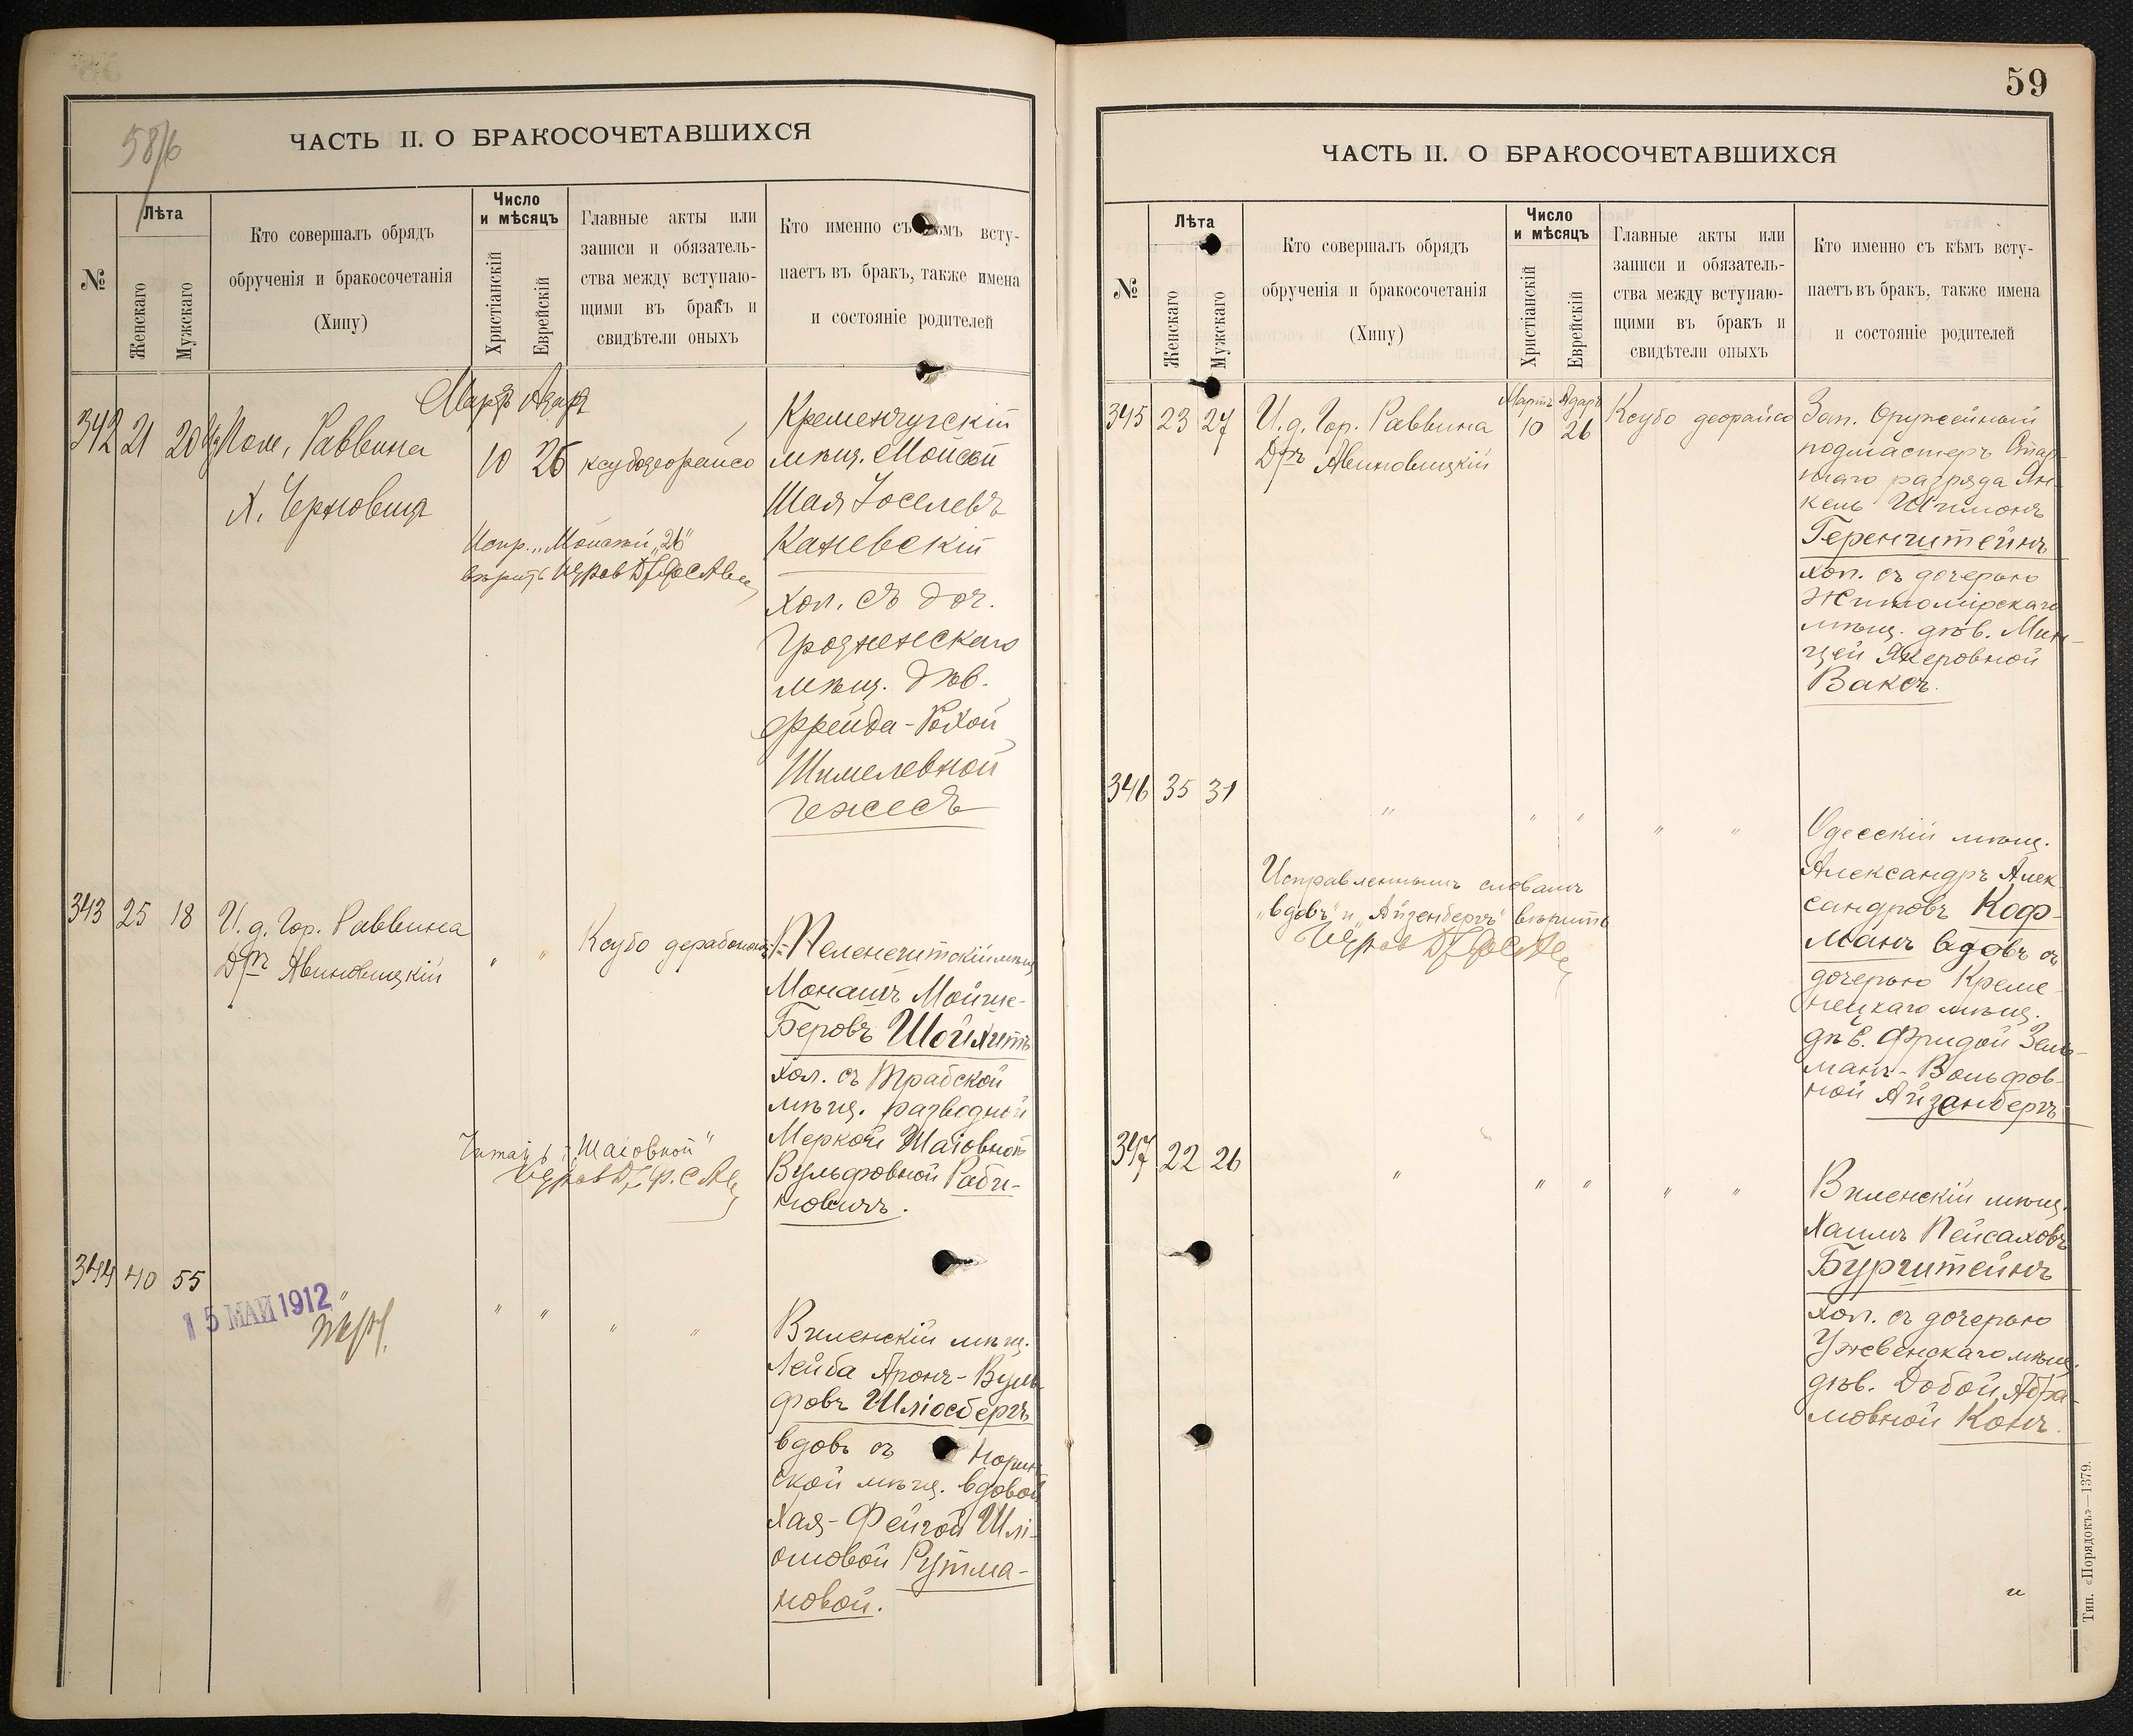 58/б
ЧАСТЬ II. О БРАКОСОЧЕТАВШИХСЯ
№
Лѣта
Женскаго
Мужскаго
Кто совершалъ обрядъ
обрученія и бракосочетанія
(Хипу)
Число
и мѣсяцъ
Христіанскій
Еврейскій
Главные акты или
записи и обязатель-
ства между вступаю-
щими въ бракъ и
свидѣтели оныхъ
Кто именно съ кѣмъ всту-
паетъ въ бракъ, также имена
и состояніе родителей
Мартъ Адаръ
342 21 20 Пом. Раввина
Х. Черновиц
10 26 ксубодеорайсо
Кременчугскій
мѣщ. Мойсей
Шая Іоселевъ
Каневскій
хол. съ доч.
Гродненскаго
мѣщ. дѣв.
Фрейда-Рохой
Шмелевной
Гежесъ
Испр. „Мойсей „26"
вѣрить
343 25 18 И. д. Гор. Раввина
Дръ Авиновицкій
" " Ксубо дерабонон
Теленештскій мѣщ
Монашъ Мойше-
Беровъ Шойхитъ
хол. съ Трабской
мѣщ. разводной
Меркой Шаіовной
Вульфовной Раби-
новичъ.
Читать: „Шаіовной"
344 40 55
15 МАЙ 1912
" " " " "
Виленскій мѣщ.
Лейба Аронъ-Вуль-
фовъ Шліосбергъ
вдовъ съ Норин
ской мѣщ. вдовой
Хая-Фейгой Шлі-
омовой Рутма-
новой.
59
ЧАСТЬ II. О БРАКОСОЧЕТАВШИХСЯ
№
Лѣта
Женскаго
Мужскаго
Кто совершалъ обрядъ
обрученія и бракосочетанія
(Хипу)
Число
и мѣсяцъ
Христіанскій
Еврейскій
Главные акты или
записи и обязатель-
ства между вступаю-
щими въ бракъ и
свидѣтели оныхъ
Кто именно съ кѣмъ всту-
паетъ въ бракъ, также имена
и состояніе родителей
Мартъ Адаръ
345 23 27 И. д. Гор. Раввина
Дръ Авиновицкій
10 26 Ксубо деорайсо
Зап. Оружейный
подмастеръ Стар-
шаго разряда Ян-
кель Шимонъ
Геренштейнъ
хол. съ дочерью
Житомірскаго
мѣщ. дѣв. Мин-
цей Якеровной
Ваксъ.
346 35 31
" " " " "
Одесскій мѣщ.
Александръ Алек-
сандровъ Коф-
манъ вдовъ съ
дочерью Креме-
нецкаго мѣщ.
дѣв. Фридой Зель-
манъ-Вольфов-
ной Айзенбергъ
Исправленнымъ словамъ
„вдовъ" и „Айзенбергъ" вѣрить
347 22 26
" " " " "
Виленскій мѣщ.
Хаимъ Пейсаховъ
Бурштейнъ
хол. съ дочерью
Ушвенскаго мѣщ.
дѣв. Добой Абра-
мовной Конъ.
Тип. «Порядокъ»—1379.